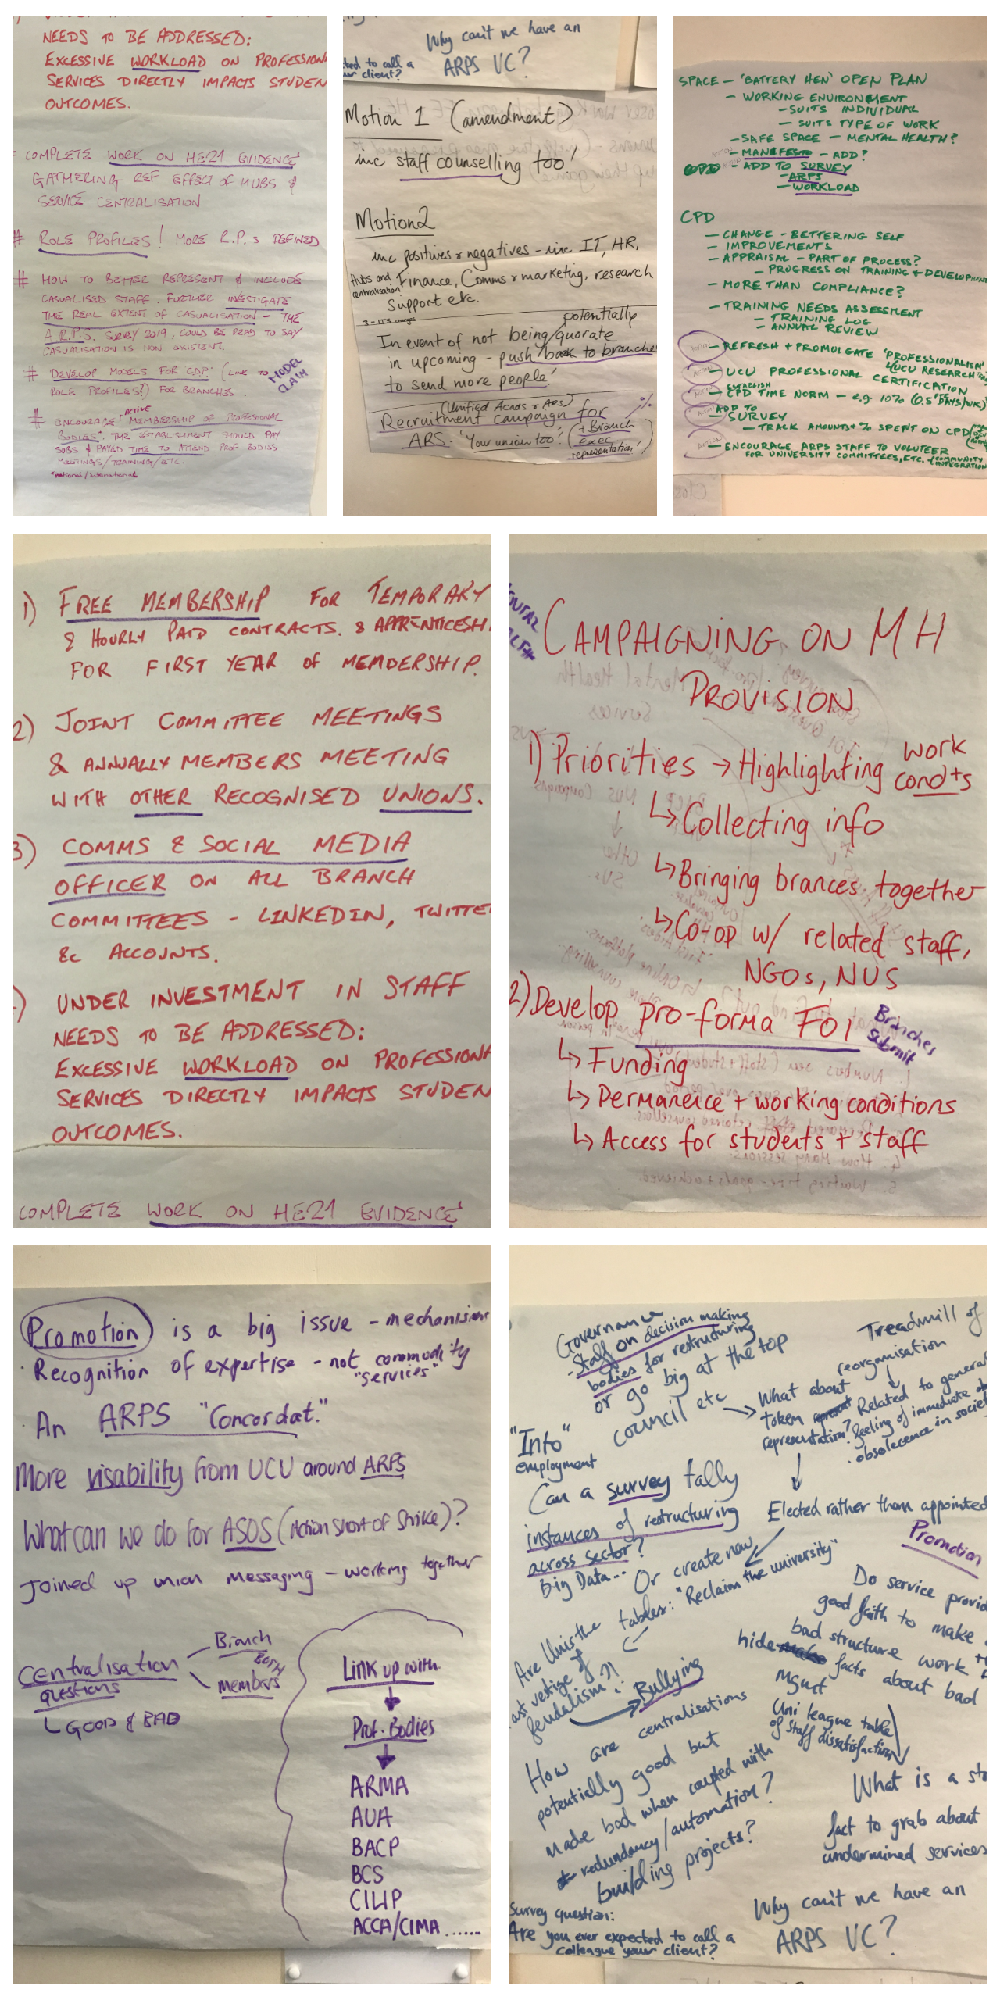 NEEDS TO BE ADDRESSED:
EXCESSIVE WORKLOAD ON PROFESSION
SERVICES DIRECTLY IMPACTS STUDEN
OUTCOMES.
COMPLETE WORK ON HE21 EVIDENCE
GATHERING REF EFFECT OF HUBS &
SERVICE CENTRALISATION
# ROLE PROFILES! MORE R.P.s DEFINED
# HOW TO BETTER REPRESENT & INCLUDE
CASUALISED STAFF. FURTHER INVESTIGATE
THE REAL EXTENT OF CASUALISATION - THE
A.R.P.S. SURVEY 2019, COULD BE READ TO SAY
CASUALISATION IS NON EXISTENT.
# DEVELOP MODELS FOR CPD (LINK TO
ROLE PROFILES?) FOR BRANCHES
MODEL
CLAIM
# ENCOURAGE ACTIVE MEMBERSHIP OF PROFESSIONAL
BODIES*. THE ESTABLISHMENT SHOULD PAY
SUBS & PAYED TIME TO ATTEND PROF. BODIES
MEETINGS/TRAINING/ETC.
*national/international
Why can't we have an
ARPS VC?
cted to call a
ur client?
Motion 1 (amendment)
inc staff counselling too!
Motion 2
inc positives + negatives - inc IT, HR,
Hubs and
centralisation
Finance, Comms + marketing, research
support etc.
In event of not being potentially quorate
in upcoming - push back to branches
to send more people
(Unified Across + ARPS)
Recruitment campaign for
ARS - 'Your union too' (+ Branch
Exec
representation)
SPACE - 'BATTERY HEN' OPEN PLAN
- WORKING ENVIRONEMENT
- SUITS INDIVIDUAL
- SUITS TYPE OF WORK
- SAFE SPACE - MENTAL HEALTH?
- MANEFESTO - ADD?
- ADD TO SURVEY
- ARPS
- WORKLOAD
CPD
- CHANGE - BETTERING SELF
- IMPROVEMENTS
- APPRAISAL - PART OF PROCESS?
- PROGRESS ON TRAINING & DEVELOPMENT
- MORE THAN COMPLIANCE?
- TRAINING NEEDS ASSESSMENT
- TRAINING LOG
- ANNUAL REVIEW
- REFRESH + PROMOLGATE 'PROFESSIONALISM'
UCU RESEARCH
- UCU PROFESSIONAL CERTIFICATION
- CPD TIME NORM - eg 10% (0.5 DAYS/WK)
- ADD TO
SURVEY
- TRACK AMOUNT & % SPENT ON CPD
- ENCOURAGE ARPS STAFF TO VOLUTEER
FOR UNIVERSITY COMMITTEES, ETC. + COMMUNITY
INTEGRATION
1) FREE MEMBERSHIP FOR TEMPORARY
& HOURLY PAID CONTRACTS. & APPRENTICESH.
FOR FIRST YEAR OF MEMBERSHIP.
2) JOINT COMMITTEE MEETINGS
& ANNUALLY MEMBERS MEETING
WITH OTHER RECOGNISED UNIONS.
3) COMMS & SOCIAL MEDIA
OFFICER ON ALL BRANCH
COMMITTEES - LINKEDIN, TWITTE
&c ACCOUNTS.
UNDER INVESTMENT IN STAFF
NEEDS TO BE ADDRESSED:
EXCESSIVE WORKLOAD ON PROFESSIONA
SERVICES DIRECTLY IMPACTS STUDEN
OUTCOMES.
COMPLETE WORK ON HE21 EVIDENCE
MENTAL
HEALTH
CAMPAIGNING ON MH
PROVISION
1) Priorities → Highlighting work
condts
↳ Collecting info
↳ Bringing brances together
↳ Co-op w/ related staff,
NGOs, NUS
2) Develop pro-forma FOI
Branches
submit
↳ Funding
↳ Permanence + working conditions
↳ Access for students + staff
Promotion is a big issue - mechanisim
· Recognition of expertise - not commodity
"services"
· An ARPS "Concordat."
More visability from UCU around ARPS
What can we do for ASOS (Action Short of Strike)?
Joined up union messaging - working together
centralisation
questions
Branch
BOTH
members
↳ GOOD & BAD
Link up with
Prof. Bodies
ARMA
AUA
BACP
BCS
CILIP
ACCA/CIMA......
Governance
- Staff on decision making
bodies for restructuring
or go big at the top
council etc
→ What about
token
representation?
Treadmill of
reorganisation
Related to general
feeling of immediate
obsolecence in societ
"Into"
employment
Can a survey tally
instances of restructuring
across sector?
big Data...
Elected rather than appointed
Or create new
tables: "Reclaim the university"
Promotion
Are Unis the
last vestige of
feudalism?!
→ Bullying
Do service provid
good faith to make
bad structure work
hide facts about bad
mgmt
Uni league table
of staff dissatisfaction
How are centralisations
potentially good but
made bad when coupled with
redundancy/automation?
building projects?
What is a st
fact to grab about
undermined services
Survey question:
Are you ever expected to call a
colleague your client?
Why can't we have an
ARPS VC?